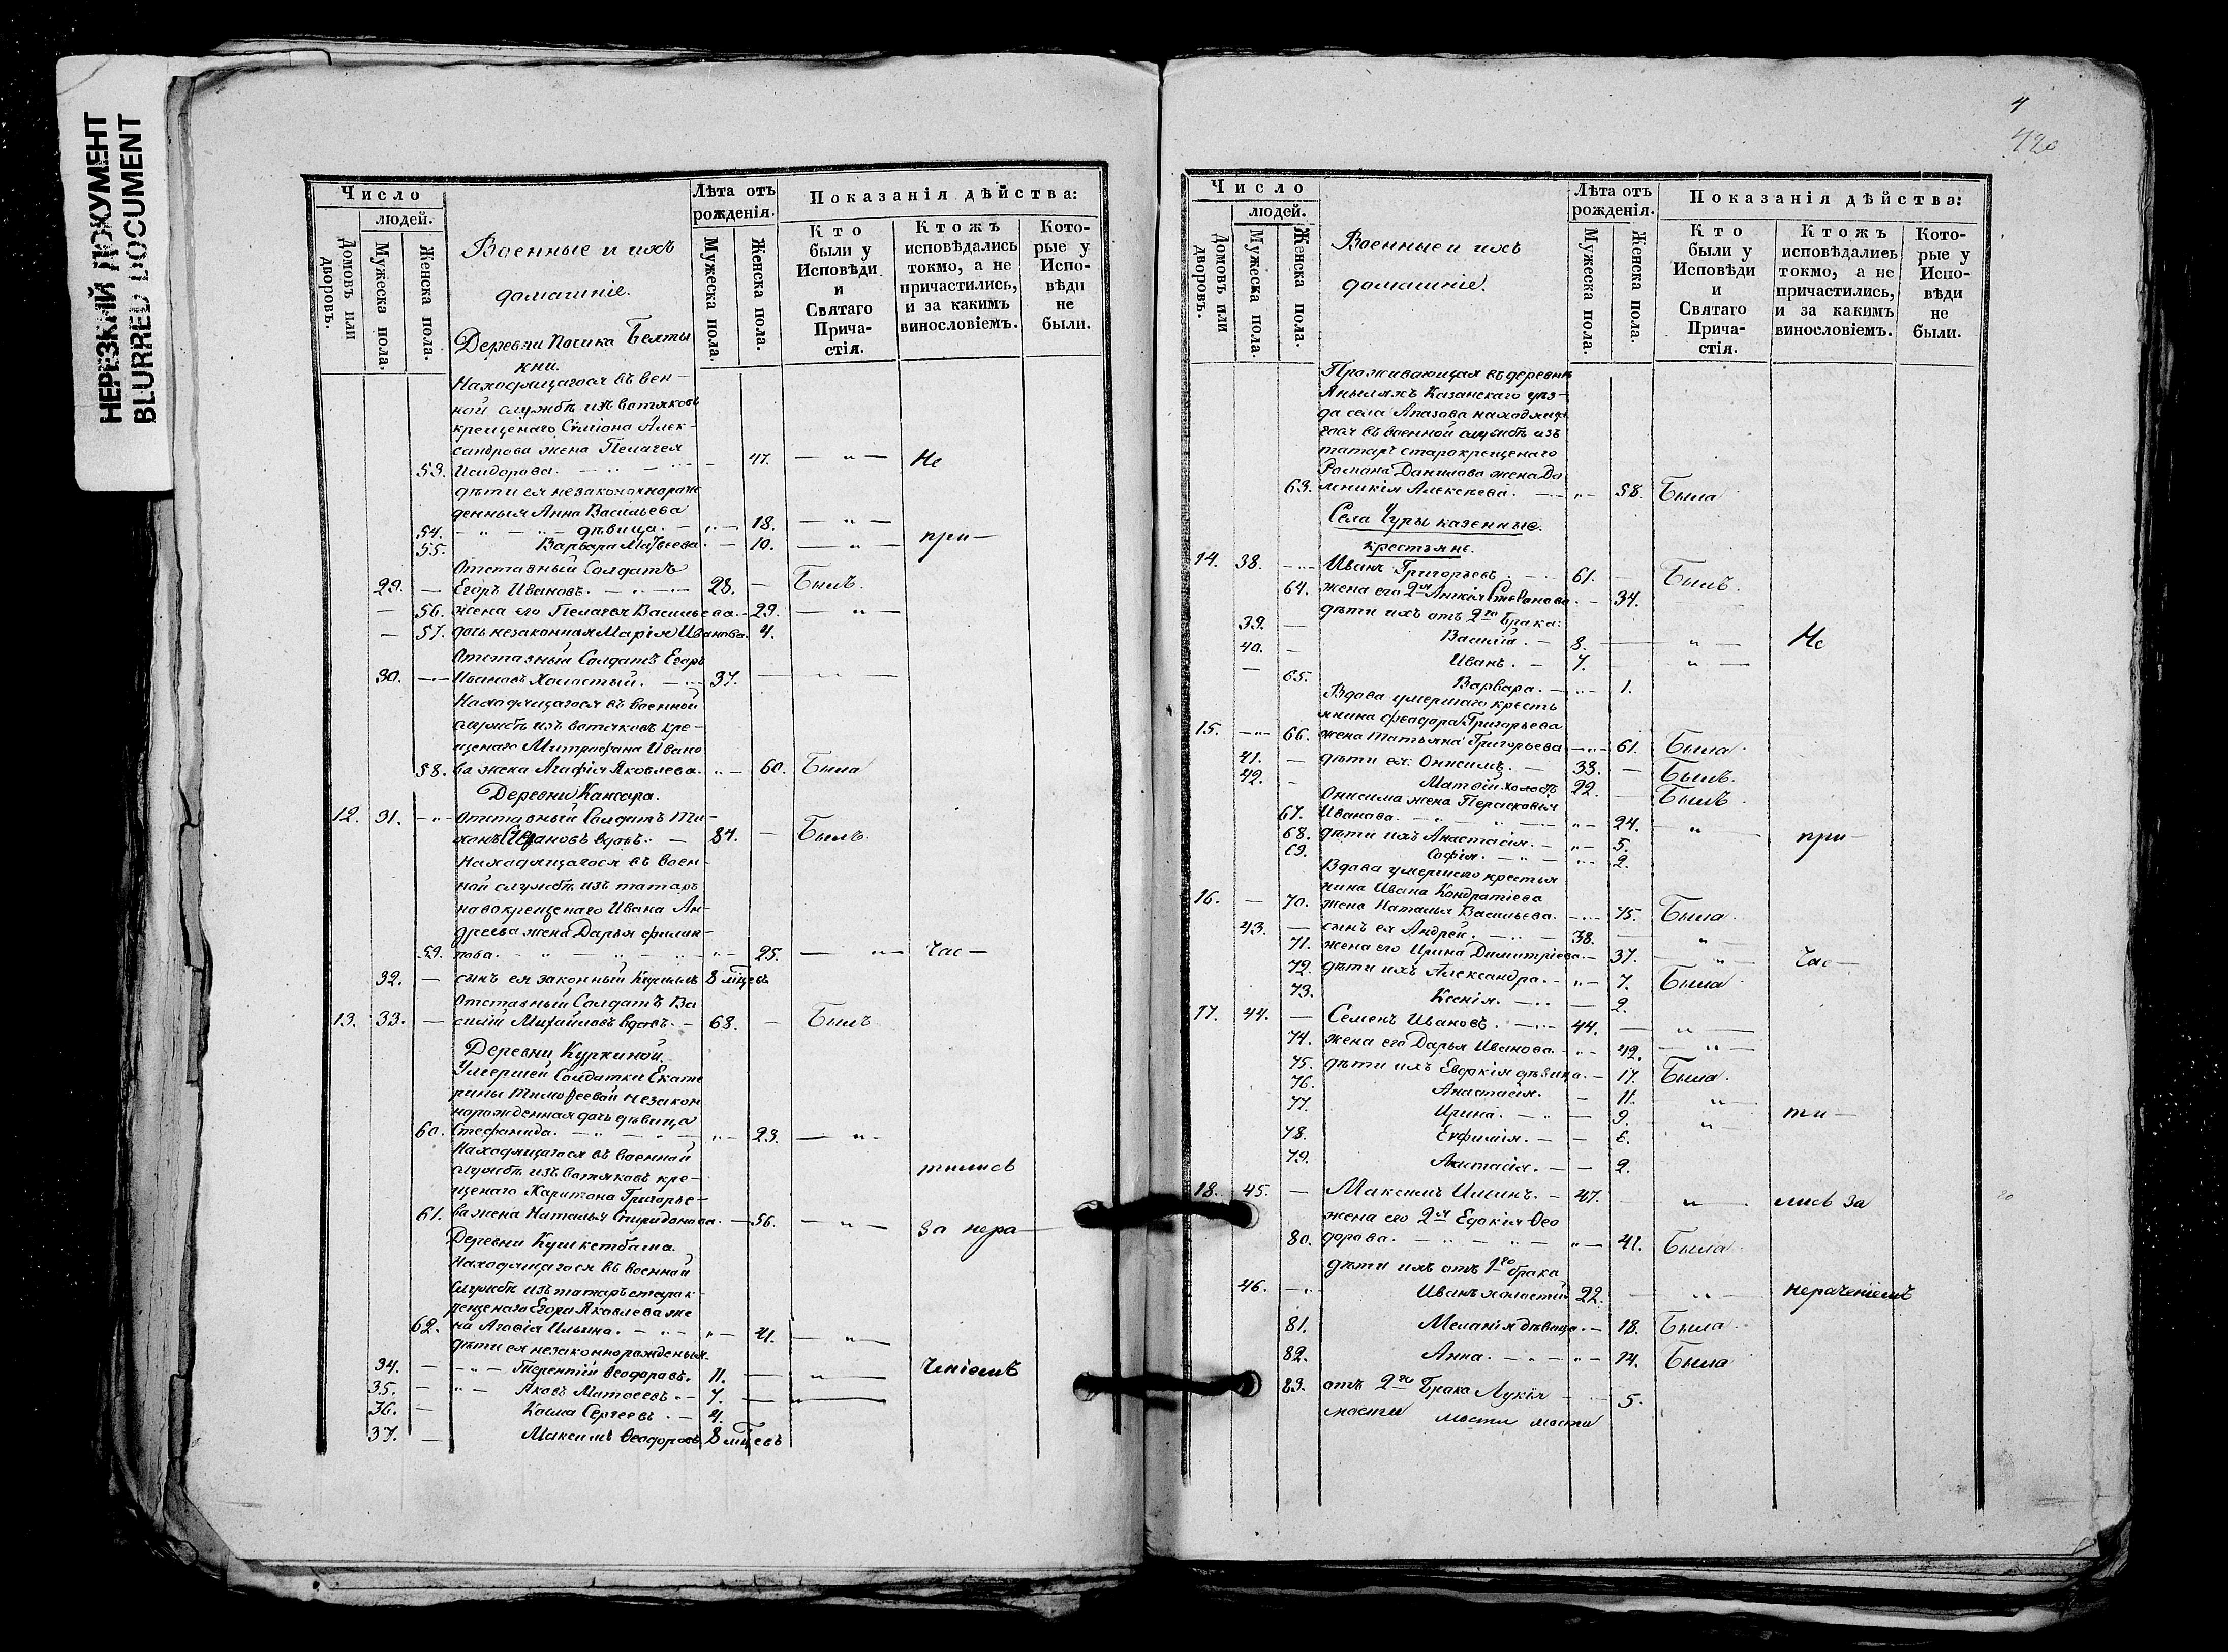 НЕРЕЗКИЙ ДОКУМЕНТ
BLURRED DOCUMENT
Число
людей.
Домовъ или дворовъ.
Мужеска пола.
Женска пола.
Военные и ихъ
домашніе.
Лѣта отъ
рожденія.
Мужеска пола.
Женска пола.
Показанія дѣйства:
Кто
были у
Исповѣди
и
Святаго
Прича-
стія.
Ктожъ
исповѣдались
токмо, а не
причастились,
и за какимъ
винословіемъ.
Кото-
рые у
Испо-
вѣди
не
были.
Деревни Починка Бекты
кни.
Находящагося въ вен-
ной службѣ изъ вотяковъ
крещенаго Симіона Алек-
сандрова жена Пелагея
53. Исидорова. 47. — " — Не
дѣти ея незаконнорож
денныя Анна Васильева
54. — " — " — дѣвица. — " — 18. — " —
55. Варвара Матѳеева. — 10. — " — при—
Отставный Солдатъ
29. — Егоръ Ивановъ. 28. — Былъ.
— 56. жена его Пелагея Васильева. — 29. — " —
— 57. дочь незаконная Марія Иванова. 4.
Отставный Солдатъ Егоръ
30. — Ивановъ Холостый. 37. — " —
Находящагося въ военной
службѣ изъ вотяковъ кре-
щенаго Митрофана Ивано
58. ва жена Агафія Яковлева. " — 60. Была
Деревни Кансара.
12. 31. — " — Отставный Солдатъ Ти-
хонъ Ивановъ вдовъ. — 84. — Былъ.
Находящагося въ воен-
ной службѣ изъ татаръ
новокрещенаго Ивана Ан-
дреева жена Дарья Филип-
59. пова. — " — 25. — " — час—
32. — сынъ ея законный Кириллъ 8 мѣцевъ
Отставный Солдатъ Ва
13. 33. — силій Михайловъ вдовъ. — 68. — Былъ
Деревни Куркиной.
Умершей Солдатки Екате
рины Тимоѳеевой незакон
норожденная дочь дѣвица
60. Стефанида. — " — 23. — " —
Находящагося въ военной
службѣ изъ вотяковъ кре- тились
щенаго Харитона Григорье-
61. ва жена Наталья Спиридонова. — 56. — " — за нера—
Деревни Кушкетбаша.
Находящагося въ военной
службѣ изъ татаръ старок
рещенаго Егора Яковлева же
62. на Агафія Ильина. — " — 41. — " —
дѣти ея незаконнорожденыя.
34. — " — Терентій Ѳеодоровъ. 11. — " — ченіемъ
35. — " — Яковъ Матвеевъ. — 7. — " —
36. — Косма Сергеевъ. — 4.
37. — Максимъ Ѳеодоровъ 8 мѣцевъ
4
420
Число
людей.
Домовъ или дворовъ.
Мужеска пола.
Женска пола.
Военные и ихъ
домашніе.
Лѣта отъ
рожденія.
Мужеска пола.
Женска пола.
Показанія дѣйства:
Кто
были у
Исповѣди
и
Святаго
Прича-
стія.
Ктожъ
исповѣдались
токмо, а не
причастились,
и за какимъ
винословіемъ.
Кото-
рые у
Испо-
вѣди
не
были.
Проживающая въ деревни
Казанскаго уѣз-
да села Апазова находяща
гося въ военной службѣ изъ
татаръ старокрещенаго
Романа Данилова жена До
63. мникія Алексѣева. — " — 58. Была
Села Чуры казенные
крестьяне.
14. 38. — Иванъ Григорьевъ. 61. — Былъ.
64. жена его 2я Стефанова. — 34.
дѣти ихъ отъ 2го брака:
39. — Василій. — 8. — " — Не
40. — Иванъ. — 7. — " —
— 65. Варвара. — " — 1.
Вдова умершаго кресть
янина Феодора Григорьева
15. — " — 66. жена Татьяна Григорьева — " — 61. Была.
41. — дѣти ея: Онисимъ. — 33. — Былъ.
42. — Матвій холостъ 22. — Былъ.
Онисима жена Перасковія
67. Иванова. — " — 24. — " —
68. дѣти ихъ Анастасія. — " — 5. при—
69. Софія. — " — 2.
Вдова умершаго крестья
нина Ивана Кондратіева
16. — 70. жена Наталья Васильева. — " — 75. Была.
43. — сынъ ея Андрей. — 38. — " —
71. жена его Ирина Димитріева. — 37. — " — час—
72. дѣти ихъ Александра. — " — 7. Была.
73. Ксенія. — " — 2.
17. 44. — Семенъ Ивановъ. — 44. — " —
74. жена его Дарья Иванова. — " — 42. — " —
75. дѣти ихъ Евдокія дѣвица. — 17. Была.
76. Анастасія. — 11. — " —
77. Ирина. — " — 9. — " — ти—
78. Евфимія. — 6.
79. Анастасія. — 2.
18. 45. — Максимъ Ильинъ. — 47. — " — лись за
жена его 2я Едокія Ѳео
80. дорова. — " — 41. Была.
дѣти ихъ отъ 1го брака
46. — " — Иванъ холостый 22. — " — нераченіемъ
81. Меланія дѣвица. — 18. Была.
82. Анна. — " — 14. Была
83. отъ 2го Брака Лукія — 5.